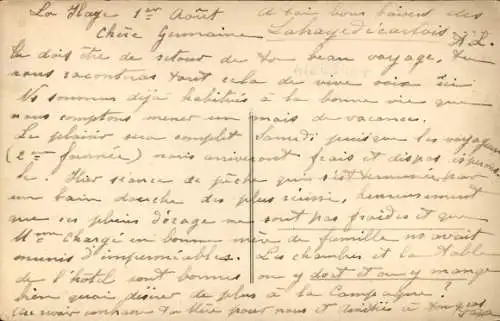 La Haye 1er Août
A toi bons baisers des
Chère Germaine Lahayedécartois
A.L.
tu dois être de retour de ton beau voyage, tu
nous raconteras tout cela de vive voix ici
Nous sommes déjà habitués à la bonne vie que
nous comptons mener un mois de vacance.
Le plaisir sera complet Samedi puisque les voyageurs
(2me fournée) nous arriveront frais et dispos
Hier séance de pêche qui s'est terminée par
un bain douche des plus réussi, heureusement
que ces pluies d'orage ne sont pas froides et que
Mme Chargé en bonne mère de famille nous avait
munis d'imperméables. Les chambres et la table
de l'hôtel sont bonnes on y dort et on y mange
bien quoi désirer de plus à la Campagne?
Au revoir ton Mère pour nous et amitiés à